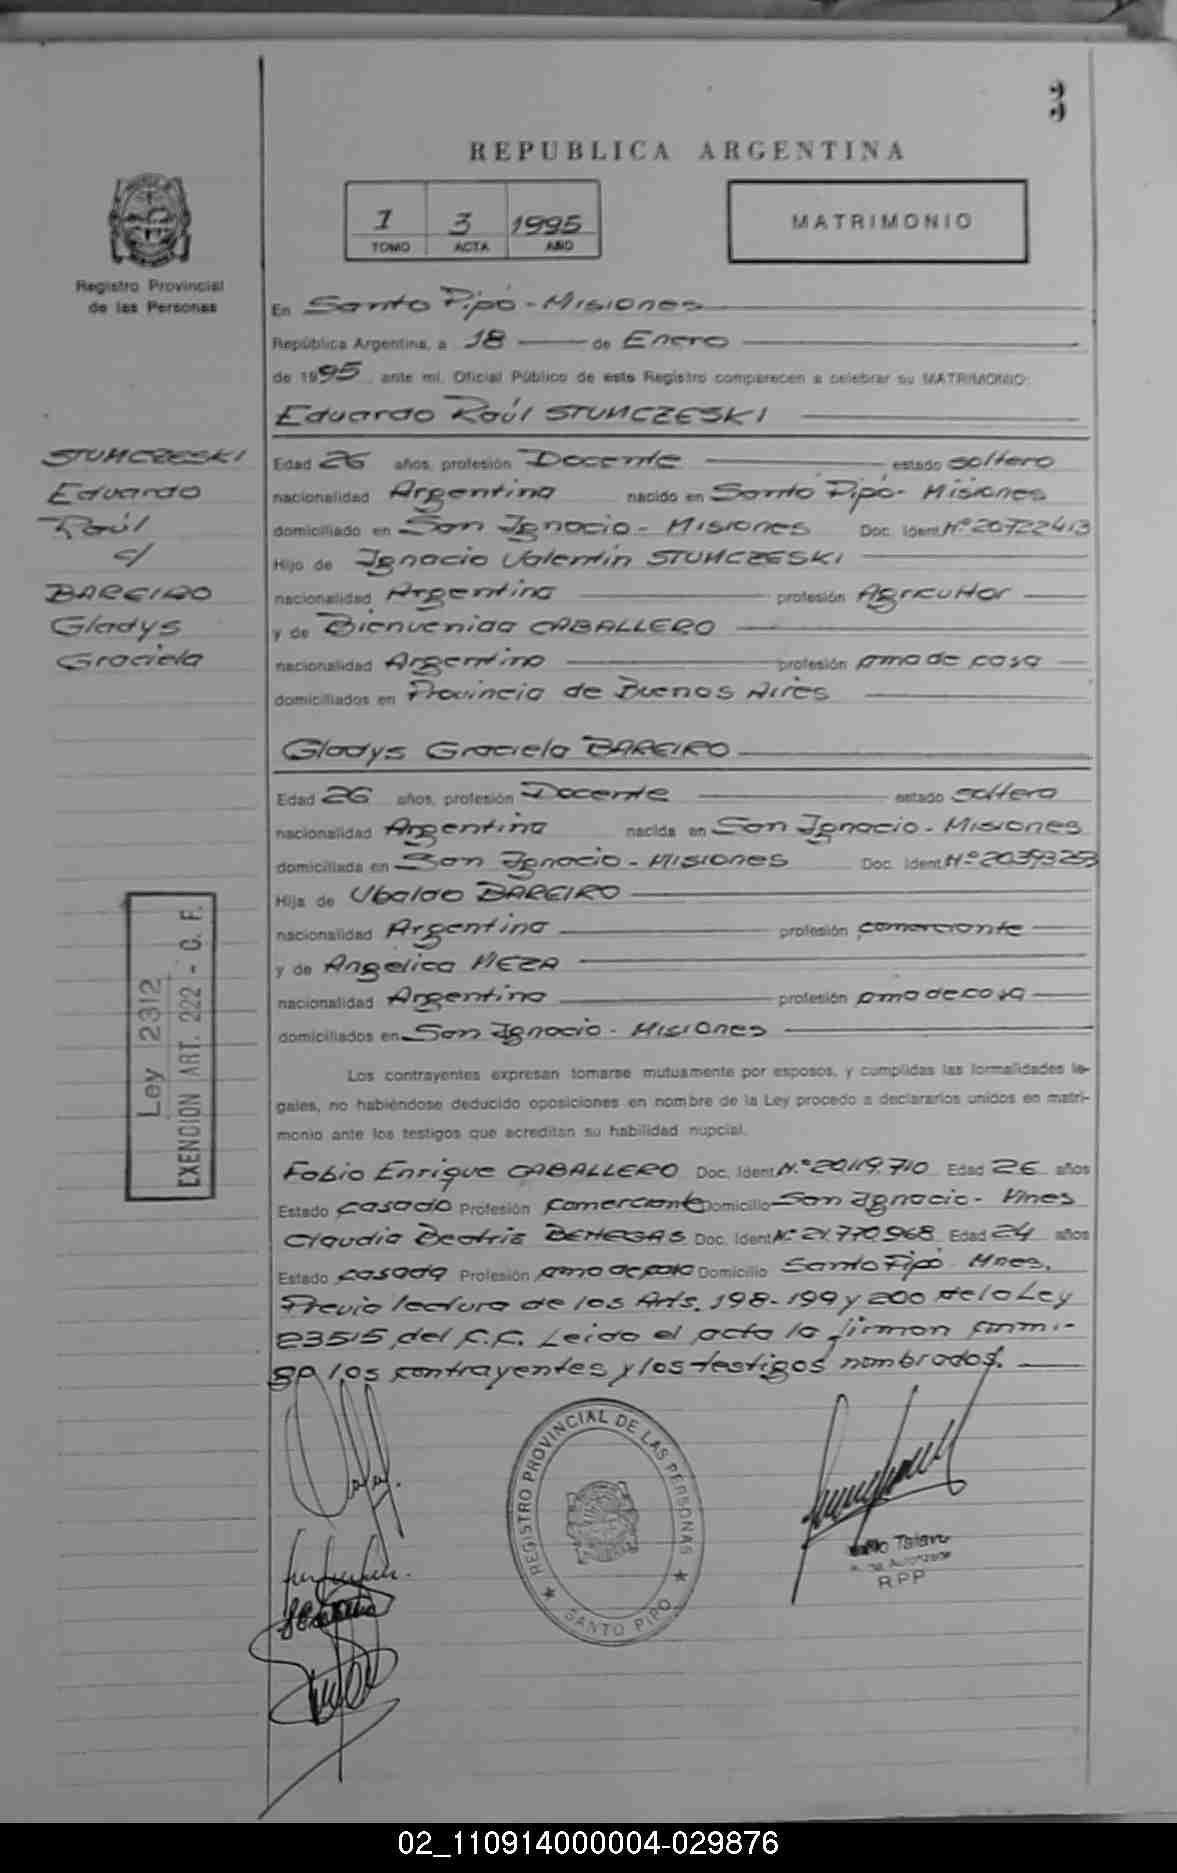 3
REPUBLICA ARGENTINA
1 3 1995
TOMO ACTA AÑO
MATRIMONIO
Registro Provincial
de las Personas
En Santo Pipó - Misiones
República Argentina, a 18 de Enero
de 1995 ante mí, Oficial Público de este Registro comparecen a celebrar su MATRIMONIO:
Eduardo Raúl STUNCZESKI
STUNCZESKI
Eduardo
Raúl
c/
BAREIRO
Gladys
Graciela
Edad 26 años, profesión Docente estado soltero
nacionalidad Argentina nacido en Santo Pipó - Misiones
domiciliado en San Ignacio - Misiones Doc. Ident. Nº 20722413
Hijo de Ignacio Valentín STUNCZESKI
nacionalidad Argentina profesión Agricultor
y de Bienvenida CABALLERO
nacionalidad Argentina profesión ama de casa
domiciliados en Provincia de Buenos Aires
Gladys Graciela BAREIRO
Edad 26 años, profesión Docente estado soltera
nacionalidad Argentina nacida en San Ignacio - Misiones
domiciliada en San Ignacio - Misiones Doc. Ident. Nº 20393253
Hija de Ubaldo BAREIRO
nacionalidad Argentina profesión comerciante
y de Angélica MEZA
nacionalidad Argentina profesión ama de casa
domiciliados en San Ignacio - Misiones
Ley 2312
EXENCION ART. 222 - C. F.
Los contrayentes expresan tomarse mutuamente por esposos, y cumplidas las formalidades le-
gales, no habiéndose deducido oposiciones en nombre de la Ley procedo a declararlos unidos en matri-
monio ante los testigos que acreditan su habilidad nupcial.
Fabio Enrique CABALLERO Doc. Ident. Nº 20119.710 Edad 26 años
Estado casado Profesión comerciante Domicilio San Ignacio - Mnes
Claudia Beatriz BENEGAS Doc. Ident. Nº 21.770.968 Edad 24 años
Estado casada Profesión ama de casa Domicilio Santo Pipó Mnes.
Previa lectura de los Arts. 198-199 y 200 de la Ley
23515 del C.C. Leido el acta la firman conmi-
go los contrayentes y los testigos nombrados.
REGISTRO PROVINCIAL DE LAS PERSONAS
SANTO PIPO
RPP
02_110914000004-029876